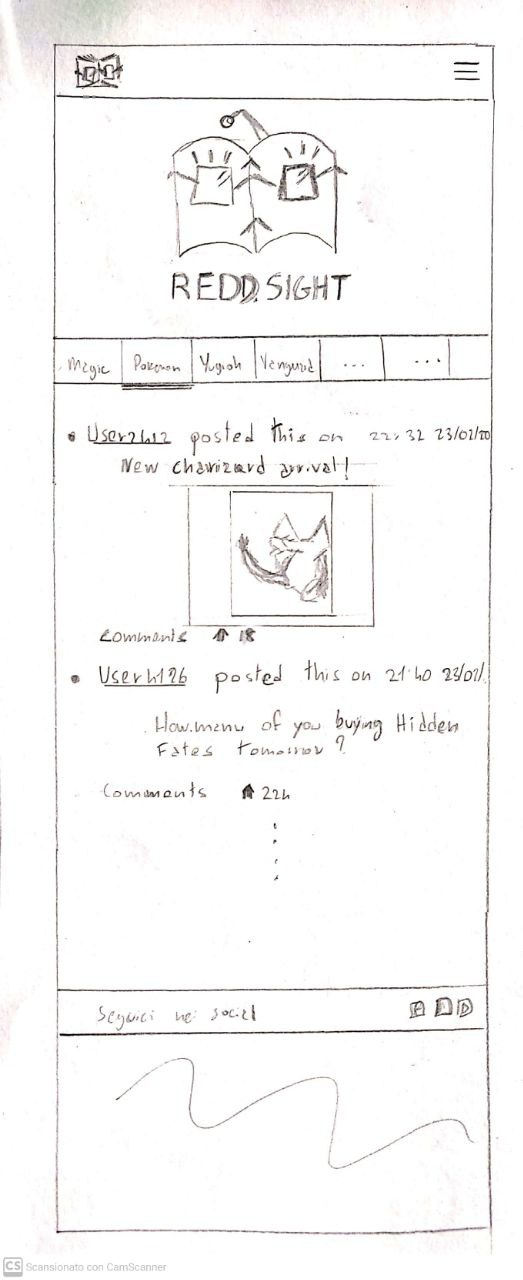 REDD.SIGHT
Magic Pokemon Yugioh Vanguard ... ...
User2412 posted this on 22:32 23/02/20
New charizard arrival!
Comments 18
User4126 posted this on 21:40 23/02/
How menu of you buying Hidden
Fates tomorrow?
Comments 224
Seguici nei social
CS Scansionato con CamScanner